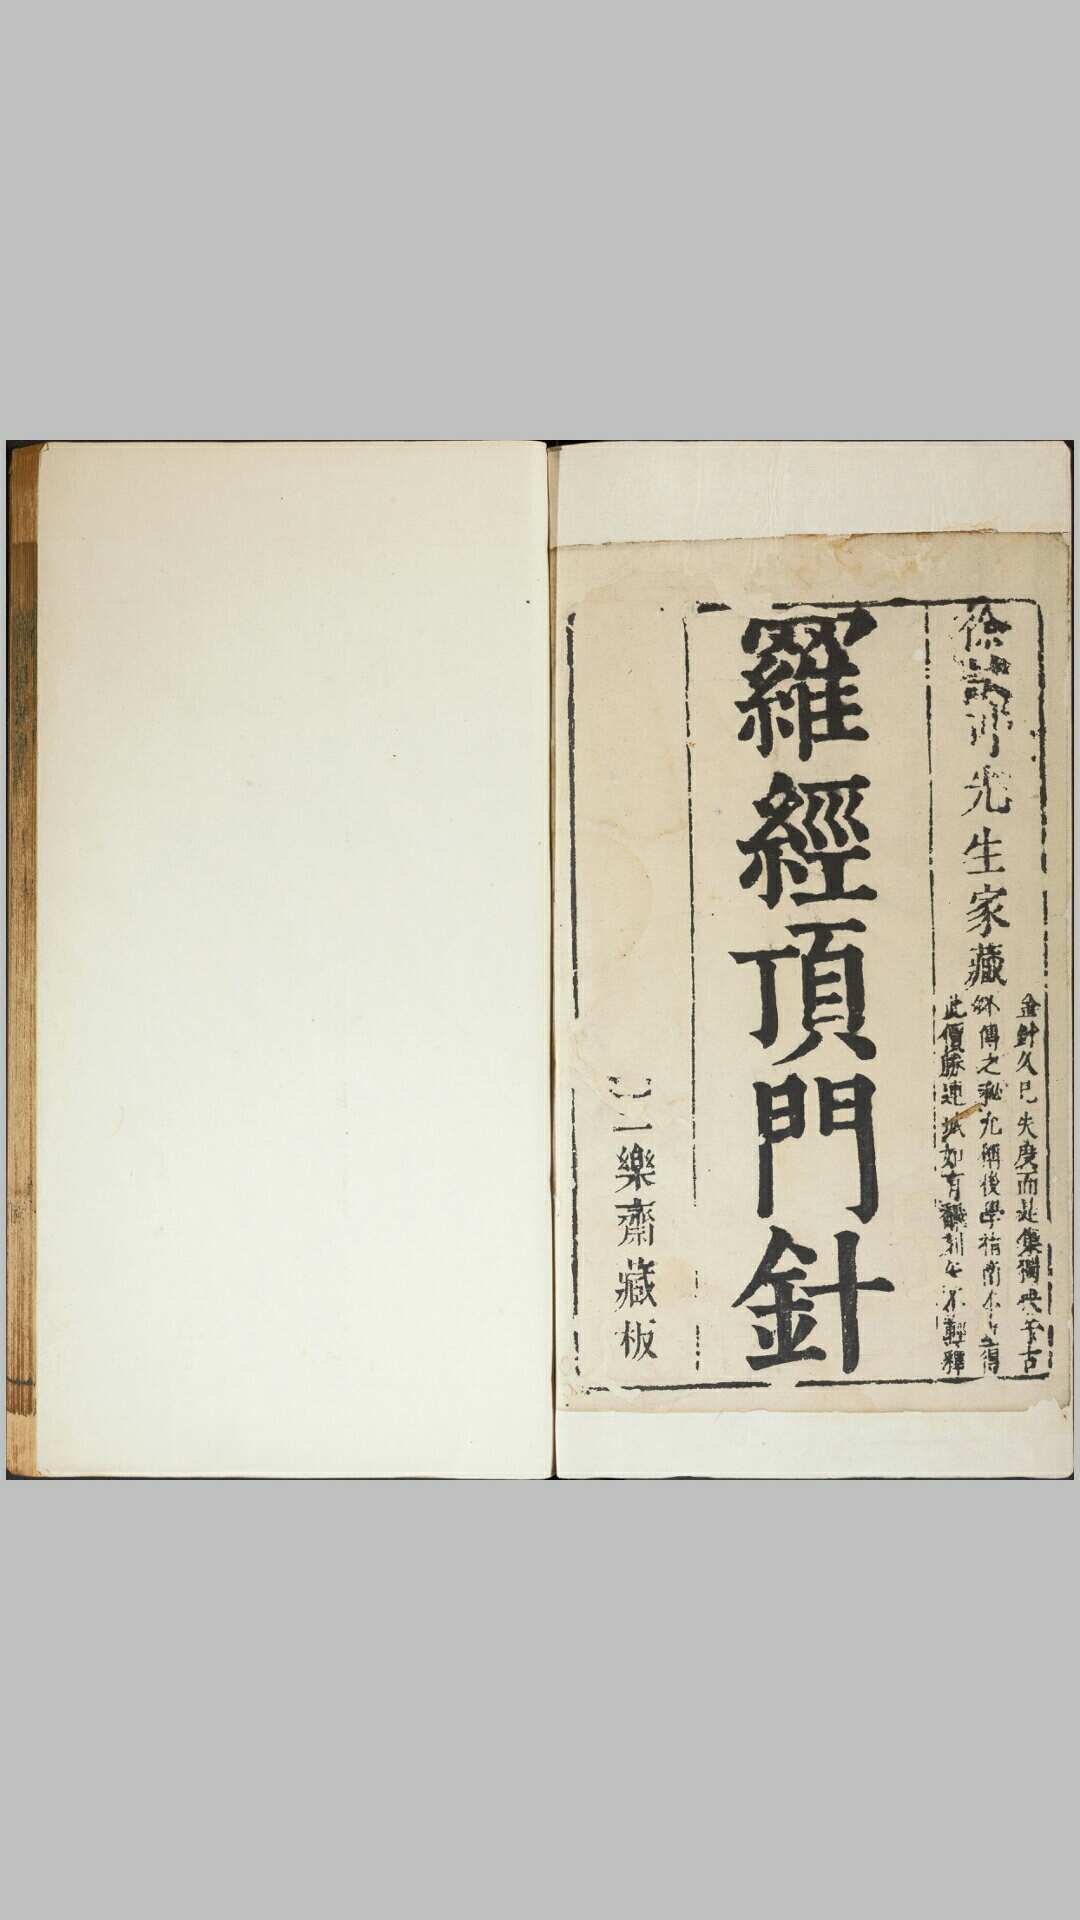 徐先生家藏
金針久已失度而是集獨古
傳之秘尤稱後學指南本得
此價勝連城如有翻刻不輕釋
羅經頂門針
樂齋藏板